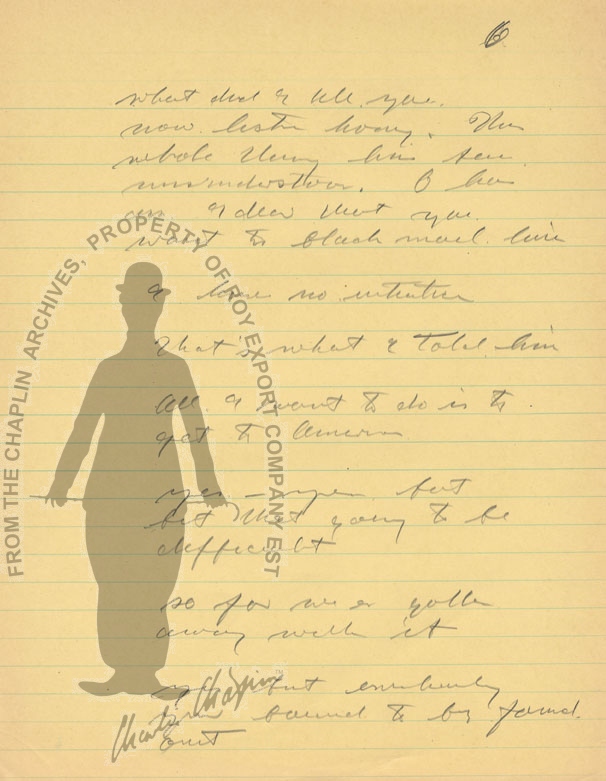 6
what did I tell you.
now listen honey. This
whole thing has been
misunderstood. O has
an idear that you
want to black mail him
I have no intention
that's what I told him
All I want to do is to
get to America
yes – yes but
but that going to be
difficult
so far we er gotten
away with it
but eventually
bound to be found
out
FROM THE CHAPLIN ARCHIVES, PROPERTY OF ROY EXPORT COMPANY EST
Charlie Chaplin